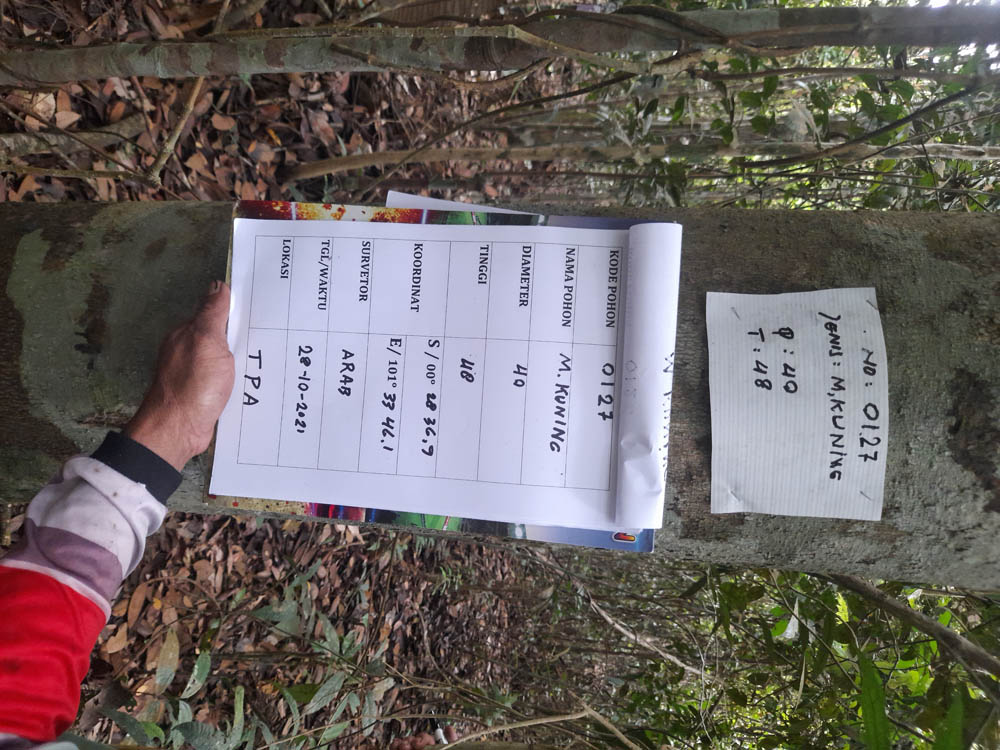 NO: 0127
JENIS: M, KUNING
Φ : 40
T : 48
KODE POHON 0127
NAMA POHON M. KUNING
DIAMETER 40
TINGGI 48
KOORDINAT S / 00° 28 36,9
E/ 101° 33 46.1
SURVETOR ARAB
TGL/WAKTU 28-10-2021
LOKASI TPA